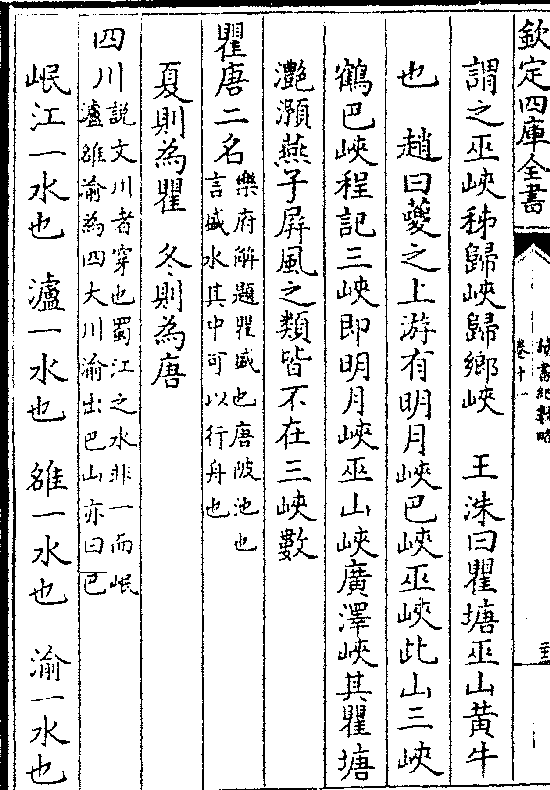 欽定四庫全書
卷十一
謂之巫峽秭歸峽歸鄉峽　王洙曰瞿塘巫山黄牛
也　趙曰夔之上游有明月峽巴峽巫峽此山三峽
鶴巴峽程記三峽即明月峽巫山峽廣澤峽其瞿塘
灔澦燕子屏風之類皆不在三峽數
瞿唐二名
樂府解題瞿盛也唐陂池也
言盛水其中可以行舟也
夏則為瞿　冬則為唐
四川
説文川者穿也蜀江之水非一而岷
瀘雒渝為四大川渝出巴山亦曰巴
岷江一水也　瀘一水也　雒一水也　渝一水也